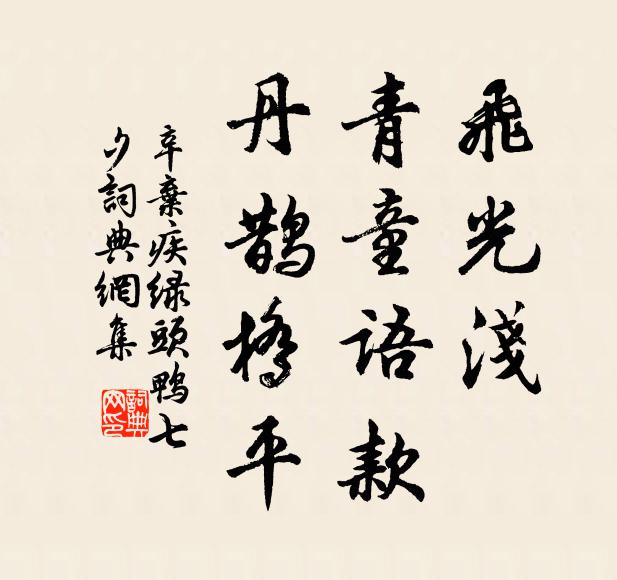 飛光淺
青童語款
丹鵲橋平
辛棄疾綠頭鴨七
夕詞典網集
詞典网印